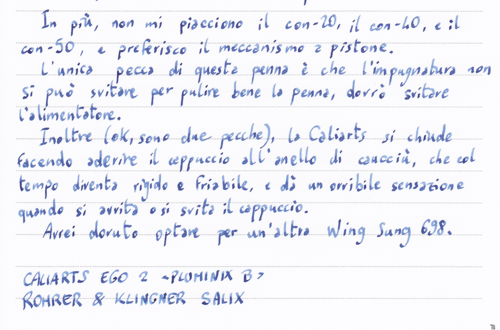 In più, non mi piacciono il con-20, il con-40, e il
con-50, e preferisco il meccanismo a pistone.
L'unica pecca di questa penna è che l'impugnatura non
si può svitare per pulire bene la penna, dovrò svitare
l'alimentatore.
Inoltre (ok, sono due pecche), la Caliarts si chiude
facendo aderire il cappuccio all'anello di caucciù, che col
tempo diventa rigido e friabile, e dà un orribile sensazione
quando si avvita o si svita il cappuccio.
Avrei dovuto optare per un'altra Wing Sung 698.
CALIARTS EGO 2 ~PLUMINIX B>
ROHRER & KLINGNER SALIX